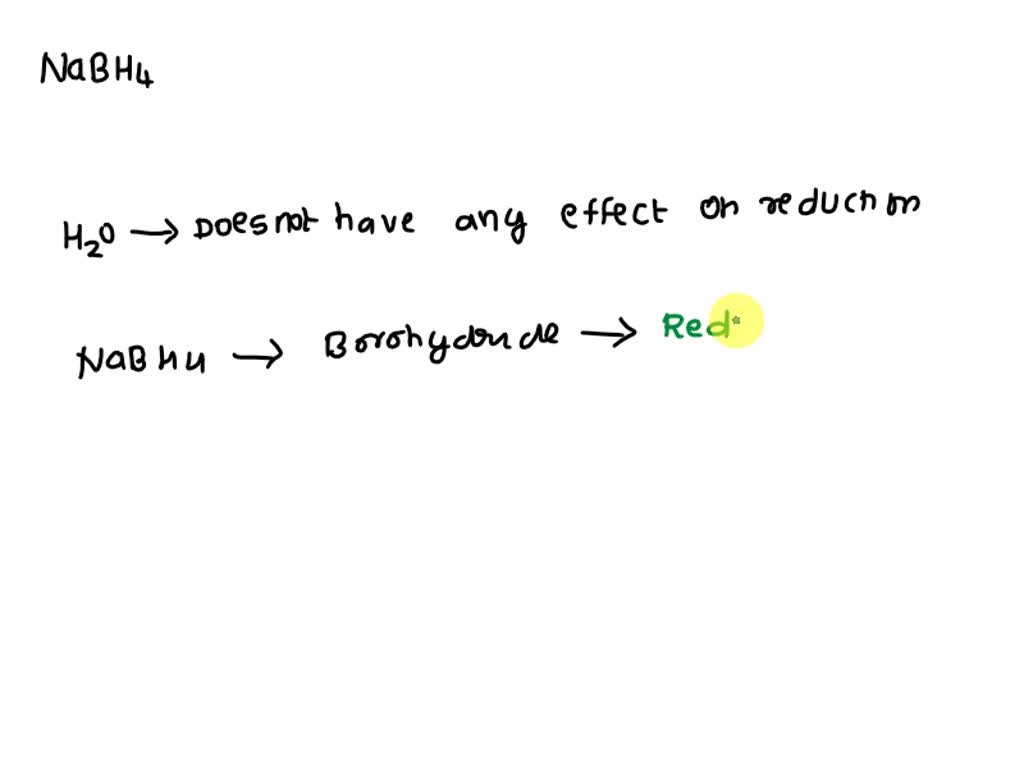 NaBH4
H2O → Does not have any effect on reduction
NaBH4 → Borohydride → Red